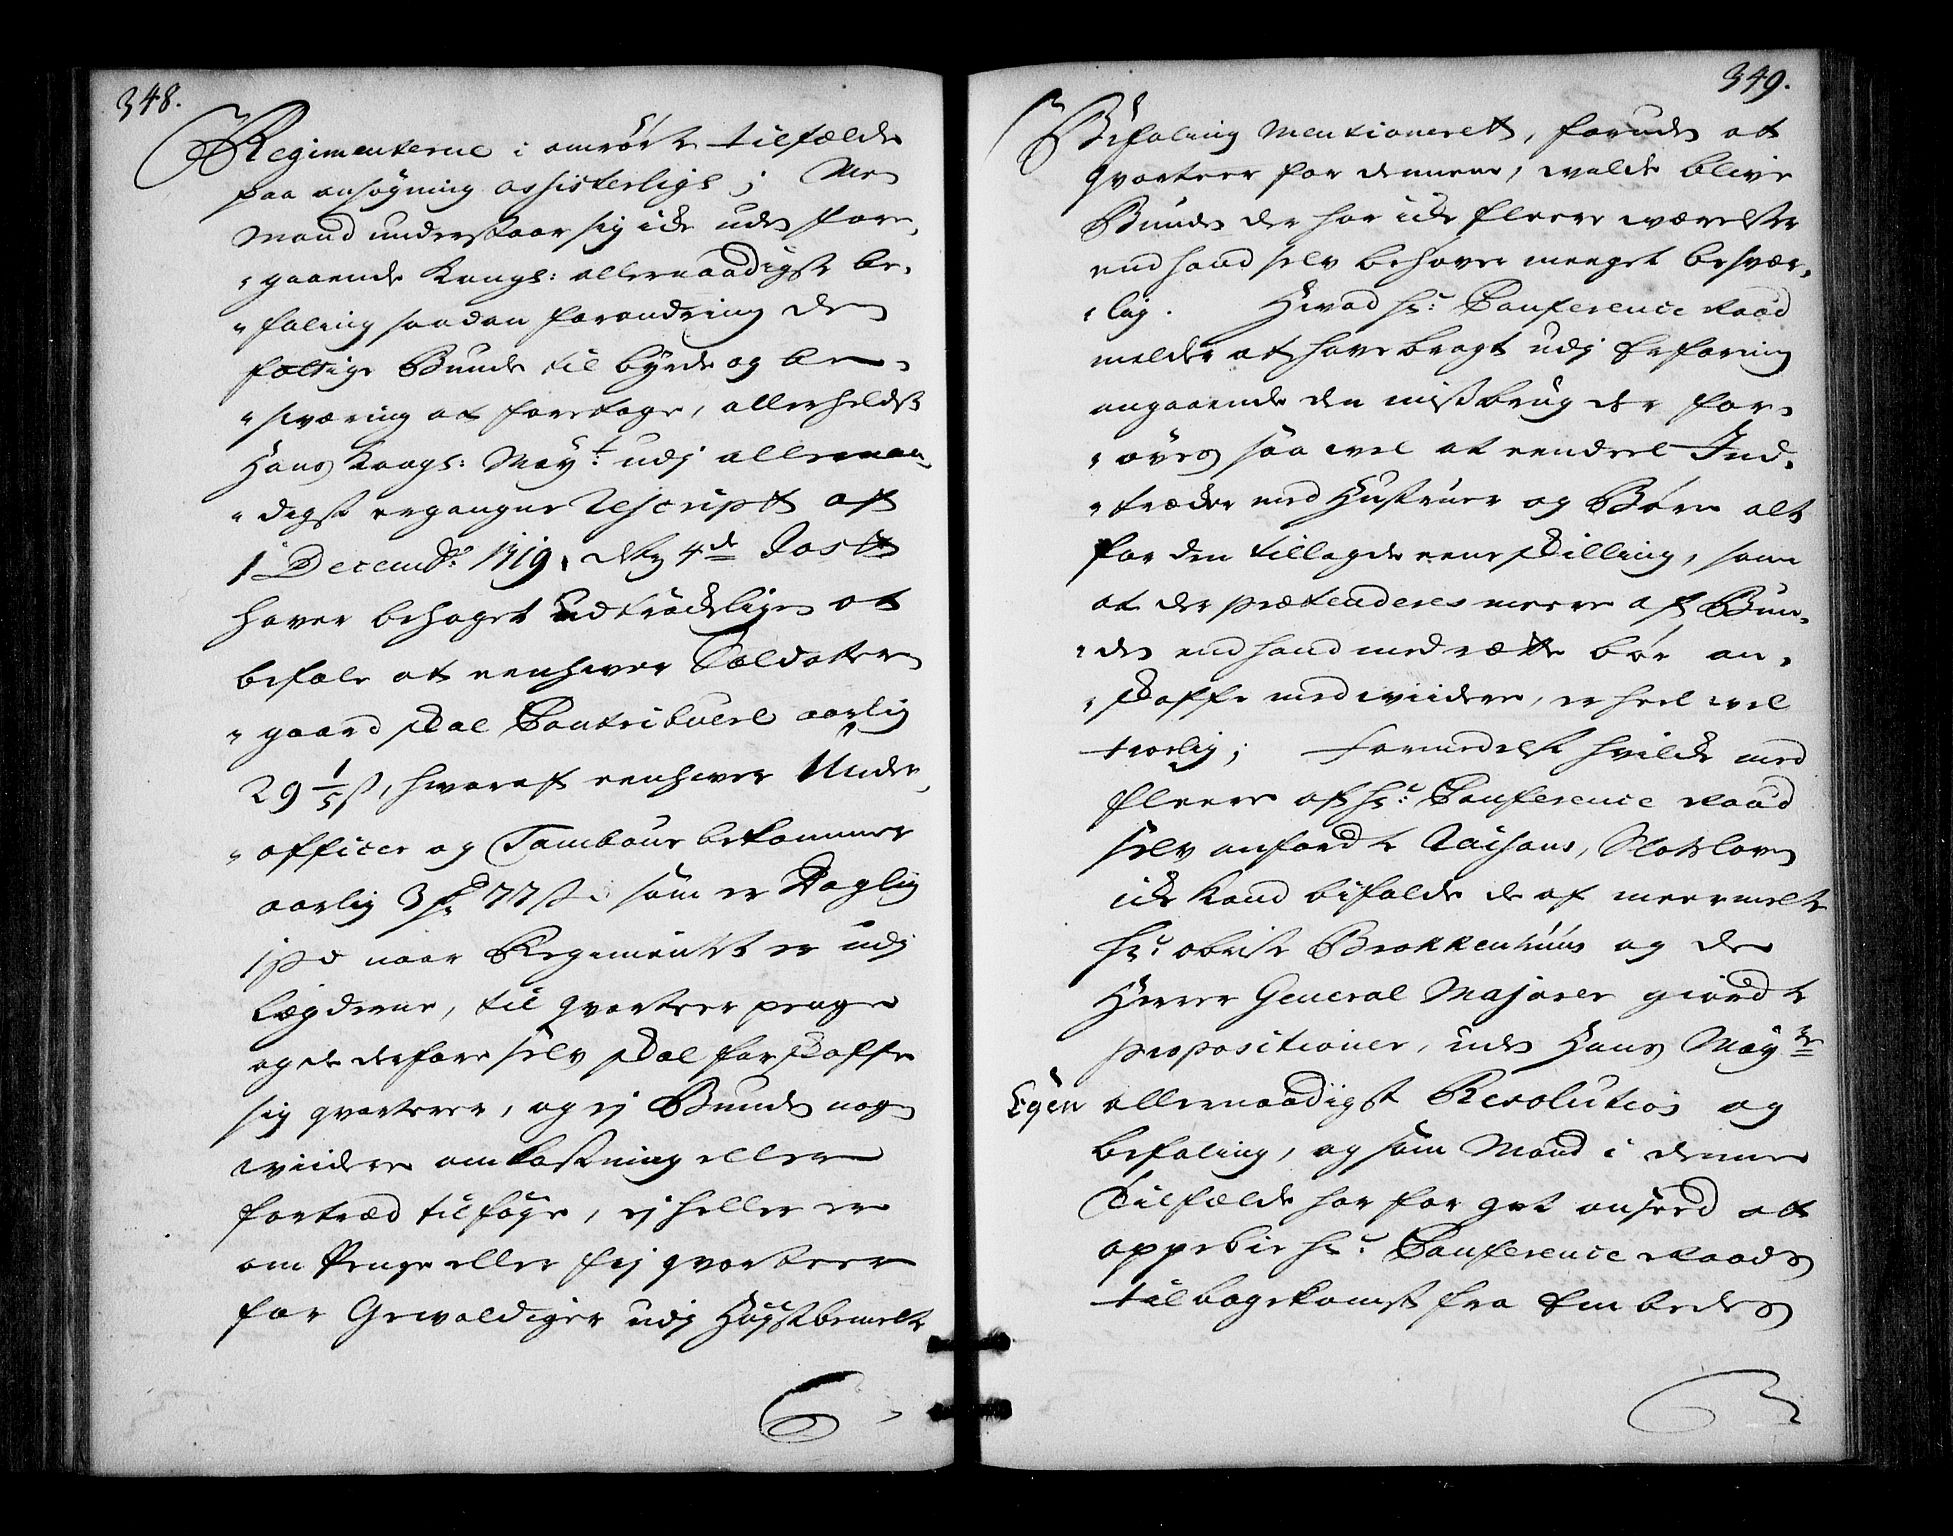 348.
Regimenterne i anrørte tilfælde
paa ansøgning assisterligt; Men
Mand understaar sig icke uden fore,
"gaaende Kongl: allernaadigste be,
"faling saadan forandring den
fattige Bunde til byrde og be,
"sværing at foretage, allerheldst
Hans Kongl: May:t udj allernaa,
"digst ergangne Rescript aff
1 Decemb: 1719, dets 4de Post
haver behaget udtrÿckeligen at
befale at eenhver Soldatter
"gaard skal Contribuere aarlig
29 1/5 ß, hvoraff eenhver Under,
"officer og Tambour bekommer
aarlig 3 rd 77 ß som er Daglig
1 ß naar Regimentet er udj
Lægderne, til qvarteer penge
og de derfore selv skal forskaffe
sig qvarteer, og ej Bunden nogen
viidere omkostning eller
fortræd tilføye, ej heller er
om Penge eller frj qvarteer
for Gewaldiger udj Høystbemelte
349.
Befaling Mentioneret, foruden at
qvarteer for dennem, vilde blive
Bunden der har icke fleere værelser
end hand selv behøver meeget besvær,
"lig. Hvad Hr: Conference Raad
melder at have bragt udj Erfaring
angaaende den misbrug der for,
"øves saa vel at eendeel Ind,
"træder med Hustruer og Børn alt
for den tillagde eene skilling, som
at der prætenderes meere af Bun,
"den end hand med rætte bør an,
"skaffe med viidere, er heel vel
troelig; Formedelst hvilcke med
fleere af Hr: Conference Raad
selv anførdte Raisons, Slotsloven
icke kand bifalde de af meermelte
Hr: Obriste Brokkenhuus og de
Herrer General Majorer giordte
propositioner, uden Hans May:ts
Egen allernaadigst Resolution og
befaling, og som Mand i denne
Tilfælde har for got anseed at
oppebie Hr: Conference Raads
tilbagekomst fra Embedes